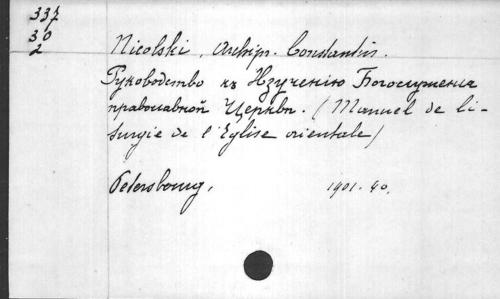 337
30
2
Nicolski, Archipr. Constantin.
Руководство къ Изученію Богослуженія
православной Церкви. (Manuel de li-
turgie de l'Eglise orientale)
Petersbourg, 1901. 40.